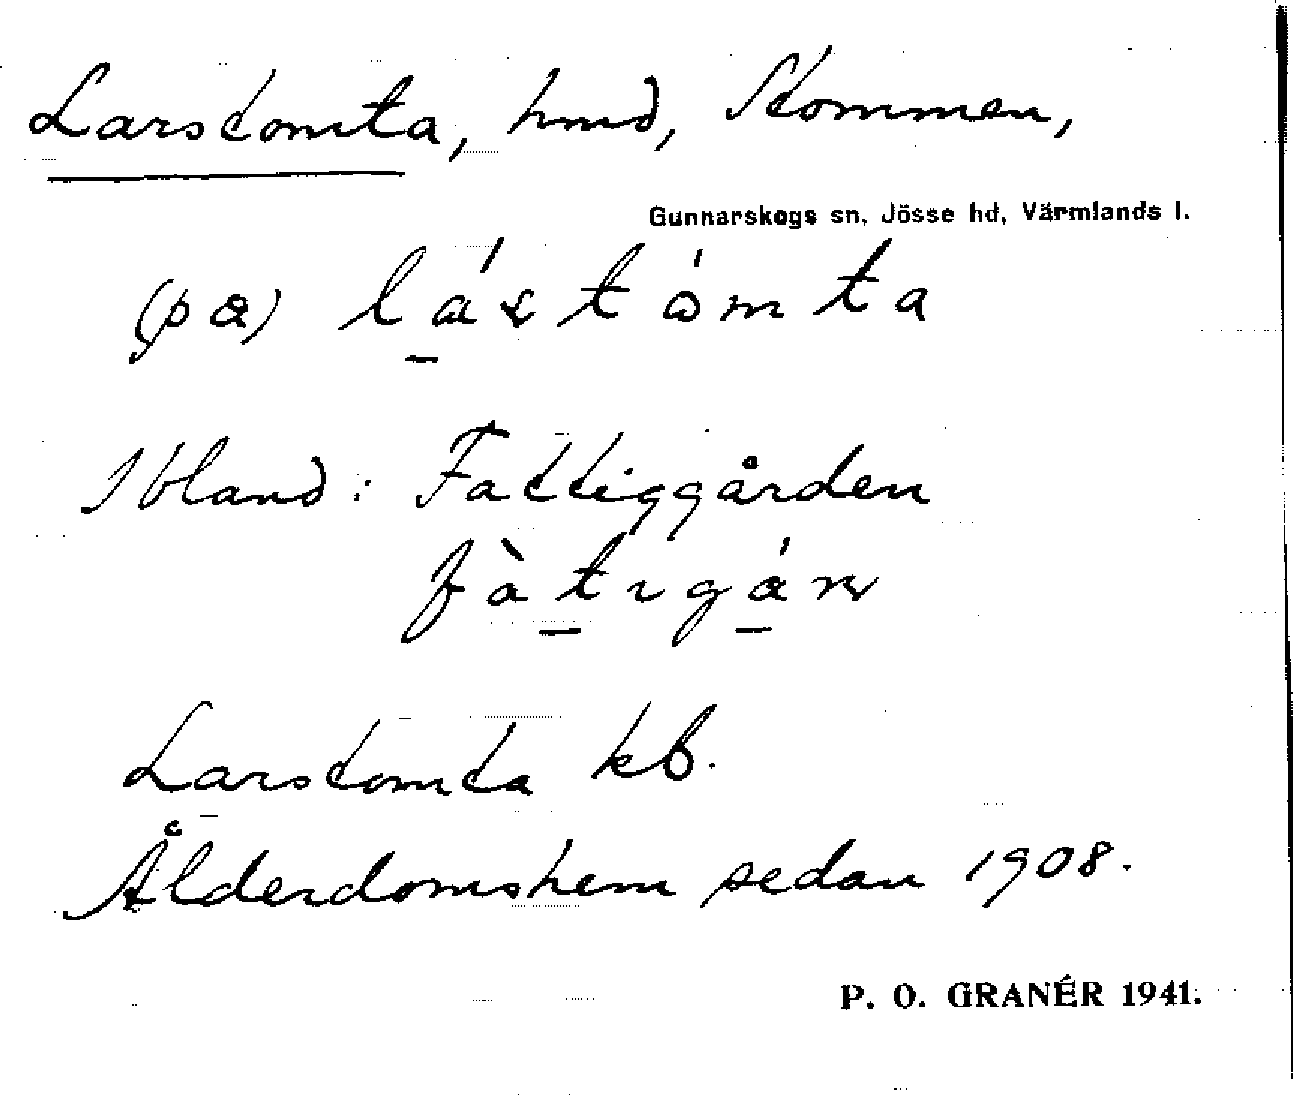 Larstomta, hmd, Stommen,
Gunnarskogs sn, Jösse hd, Värmlands l.
(på) lástòmta
Ibland: Fattiggården
fàtɩgán
Larstomta kb.
Ålderdomshem sedan 1908.
P. O. GRANÉR 1941.